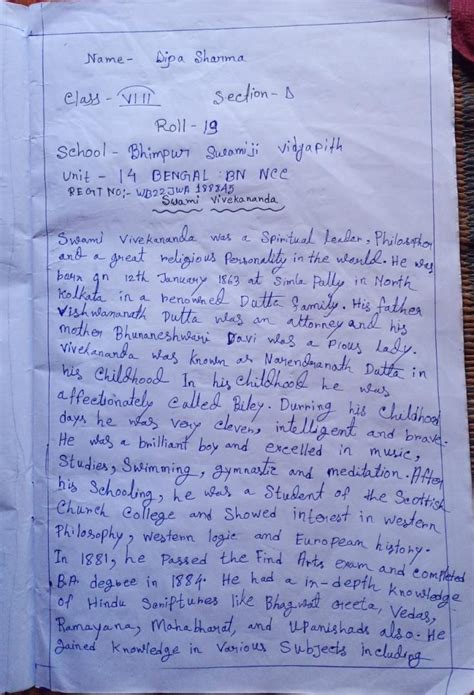 Name- Dipa Sharma
Class - VIII Section - D
Roll - 19
School - Bhimpur Swamiji Vidyapith
Unit - 14 BENGAL BN NCC
REGT NO:- WB22JWA188345
Swami Vivekananda
Swami Vivekananda was a Spiritual Leader, Philosopher
and a great religious Personality in the world. He was
born gn 12th January 1863 at Simla Pally in North
Kolkata in a renowned Dutta family. His father
Vishwananath Dutta was an attorney and his
mother Bhunaneshwari Davi was a Pious Lady.
Vivekananda was known as Narendranath Dutta in
his Childhood In his Childhood he was
affectionately Called Biley. Durning his Childhood
days he was very Clever, intelligent and brave.
He was a brilliant boy and excelled in music,
Studies, Swimming, gymnastic and meditation. After
his Schooling, he was a Student of the Scottish
Church College and Showed interest in western
Philosophy, western logic and European history.
In 1881, he Passed the Find Arts Exam and completed
B.A. degree in 1884. He had a in-depth Knowledge
of Hindu Saniptures like Bhagwat Greeta, Vedas,
Ramayana, Mahabharat, and Upanishads also. He
gained Knowledge in Various Subjects including